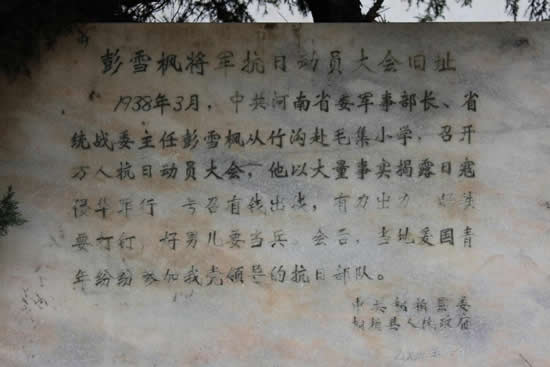 彭雪枫将军抗日动员大会旧址
1938年3月，中共河南省委军事部长、省
统战委主任彭雪枫从竹沟赴毛集小学，召开
万人抗日动员大会，他以大量事实揭露日寇
侵华罪行，号召有钱出钱，有力出力，好铁
要打钉，好男儿要当兵。会后，当地爱国青
年纷纷参加我党领导的抗日部队。
中共桐柏县委
桐柏县人民政府